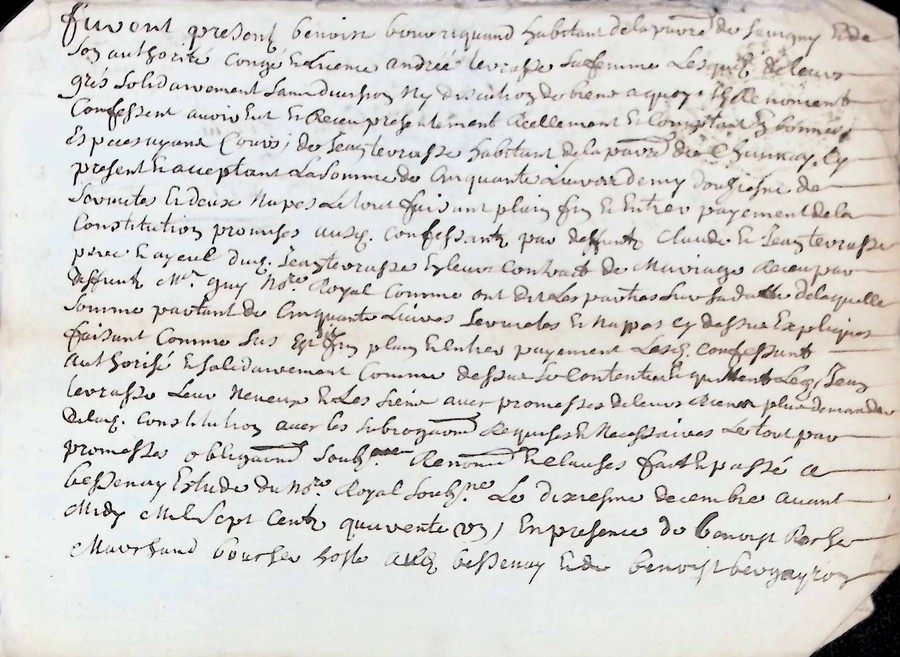 furent present benoist bourriquand habitant de la parre de savigny Et de
Son authorité Congé Et licence andrée terrasse sa femme Lesquels de leurs
grés Solidairement Sans division Ny discution de biens a quoy Ils Renoncent
Confessent avoir Eut Et Receu presentement Reellement Et Comptant En bonnes
Espaces ayant Cours, de Jean terrasse habitant de la parre de Chinnay Cy
present Et acceptant La somme de Cinquante Livres demy douziesne de
Serviètes Et deux Napes Le tout faisant plain fin Et Entier payement de la
Constitution promises ausd. Confessants par deffunts Claude Et Jean terrasse
pere Et ayeul dud. Jean terrasse En leurs Contract de Mariage Receu par
deffunt Me. guy Nore Royal Comme ont dit Les parties sur sa datte de laquelle
Somme partant de Cinquante Livres servietes Et Nappes cy dessus Expliqués
faisant Comme sus Est fin plain Et Entier payement Lesd. Confessants
authorisé Et solidairement Comme dessus se Contentent Et quittent Led. Jean
terrasse Leur Neveux Et Les siens avec promesses de leurs Rien plus demander
de lad. Constitution avec les subrogaons Requises Et Necessaires Le tout par
promesses obligaons Soubs Renonc Et clauses fait Et passé a
bessenay Estude du Nore Royal Soubsne Le dixiesme decembre avant
Midy Mil Sept Cents quarente un, En presence de benoist Roche
Marchand boucher hoste aud. bessenay Et de benoist bergayron